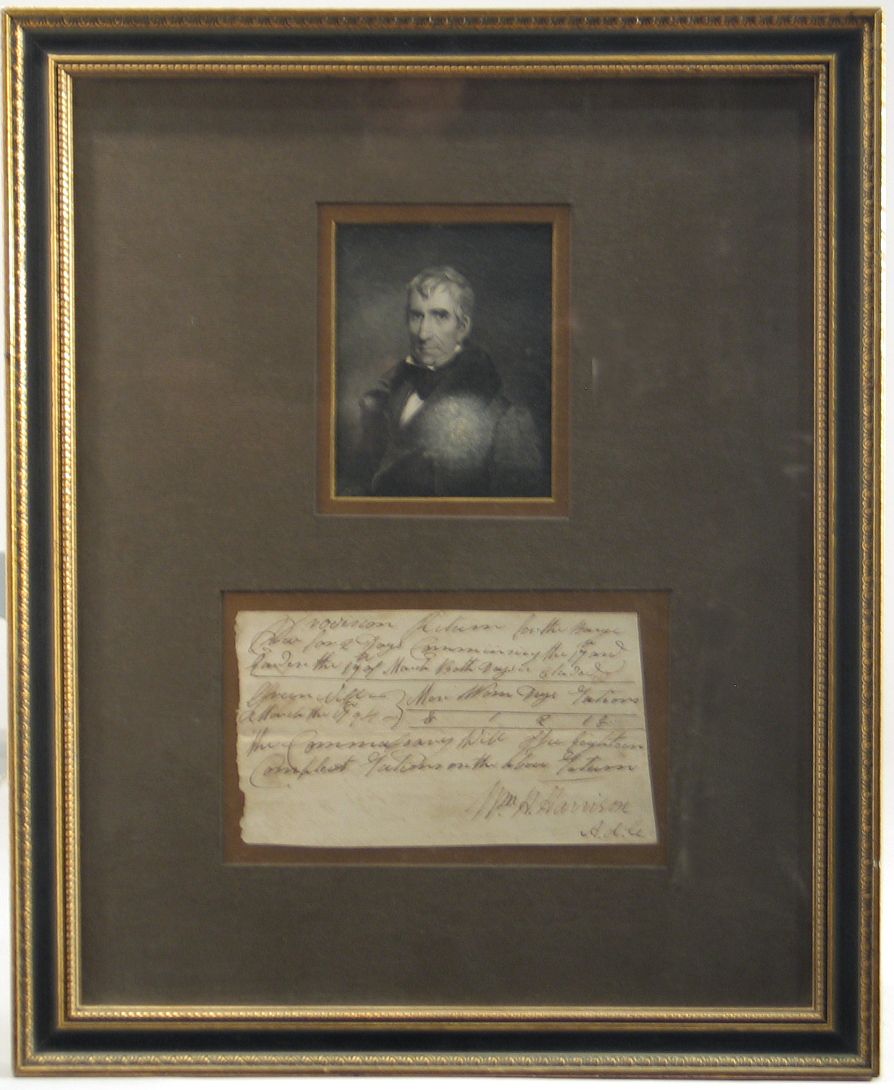 Provision Return for the Barge
Crew for 2 Days Commencing the 17th and
Ending the 19th of March Both Days included
Green Ville
March the 17th 94 } Men Wom Days Rations
8 1 2 18
the Commissary Will Issue Eighteen
Compleat Rations on the above Return
Wm H. Harrison
A. d. C.